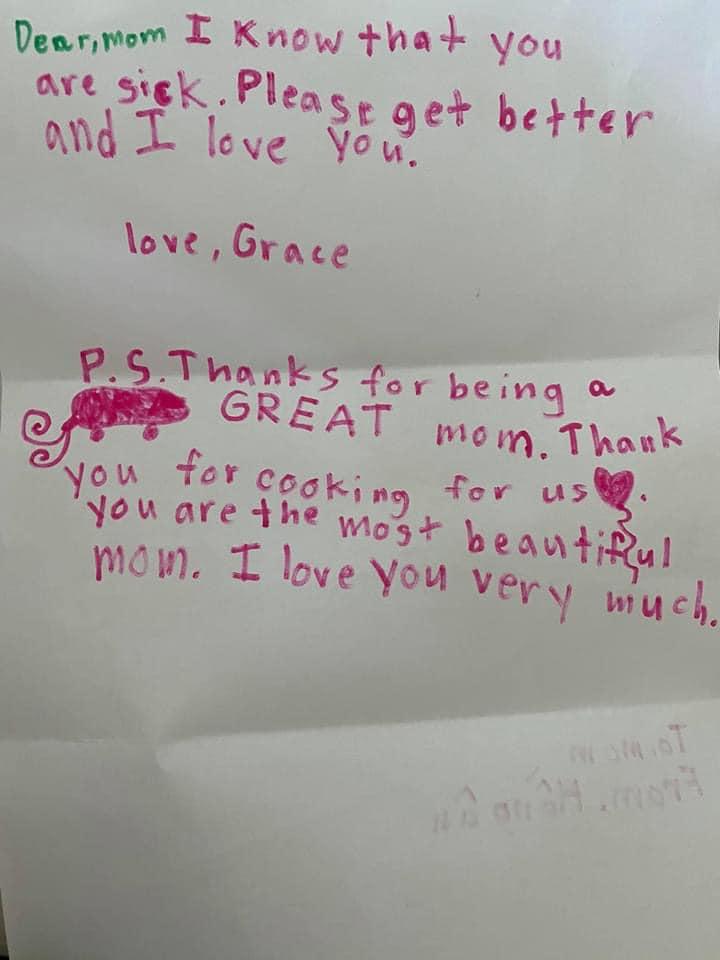 Dear, mom I Know that you
are sick. Please get better
and I love you.
love, Grace
P.S. Thanks for being a
GREAT mom. Thank
you for cooking for us.
you are the most beautiful
mom. I love you very much.
To. mom
From. Hồng Ân